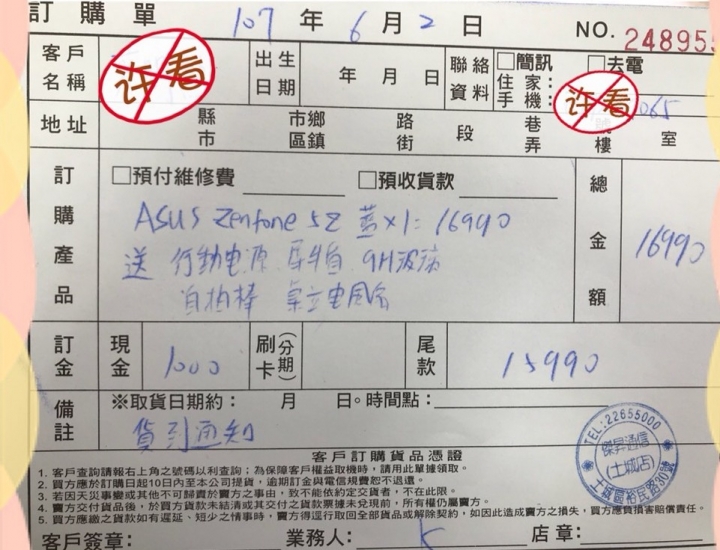 訂購單 107年6月2日 NO. 248955
客戶名稱 許看 出生日期 年 月 日 聯絡資料 □簡訊 □去電
住家：
手機： 許看 065
地址 縣市 市鄉區鎮 路街 段 巷弄 號樓 室
訂購產品 □預付維修費 □預收貨款 總金額
ASUS Zenfone 5Z 蓝x1=16990 16990
送 行動电源 犀牛盾 9H玻璃
自拍棒 桌立电風扇
訂金 現金 1000 刷卡(分期) 尾款 15990
備註 ※取貨日期約： 月 日。時間點：
貨到通知
TEL:22655000
傑昇通信
(土城店)
土城區裕民路30號
客戶訂購貨品憑證
1. 客戶查詢請報右上角之號碼以利查詢；為保障客戶權益取機時，請用此單據領取。
2. 買方應於訂購日起10日內至本公司提貨，逾期訂金與電信規費恕不退還。
3. 若因天災事變或其他不可歸責於賣方之事由，致不能依約定交貨者，不在此限。
4. 賣方交付貨品後，於買方貨款未結清或其交付之貨款票據未兌現前，所有權仍屬賣方。
5. 買方應繳之貨款如有遲延、短少之情事時，賣方得逕行取回全部貨品或解除契約，如因此造成賣方之損失，買方應負損害賠償責任。
客戶簽章： 業務人： 店章：